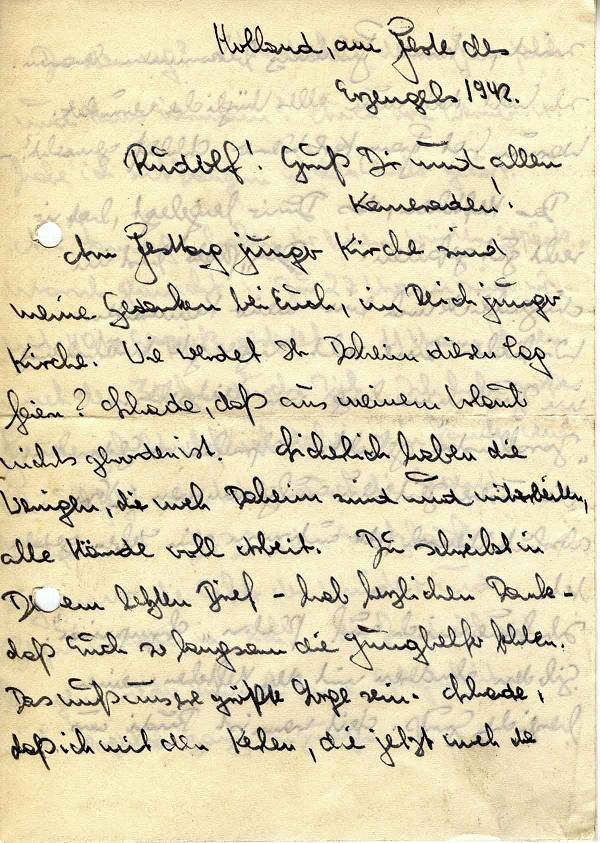 Holland, am Feste des
Erzengels 1942.
Rudolf! Gruß Dir und allen
Kameraden!
Am Festtag junger Kirche sind
meine Gedanken bei Euch, im Reich junger
Kirche. Wie werdet Ihr Daheim diesen Tag
feiern? Schade, daß aus meinem Urlaub
nichts geworden ist. Sicherlich haben die
Wenigen, die noch Daheim sind und mitarbeiten,
alle Hände voll Arbeit. Du schreibst in
Deinem letzten Brief - hab herzlichen Dank -
daß Euch so langsam die Junghelfer fehlen.
Das muß unsere größte Sorge sein. Schade,
daß ich mit den Kerlen, die jetzt noch da